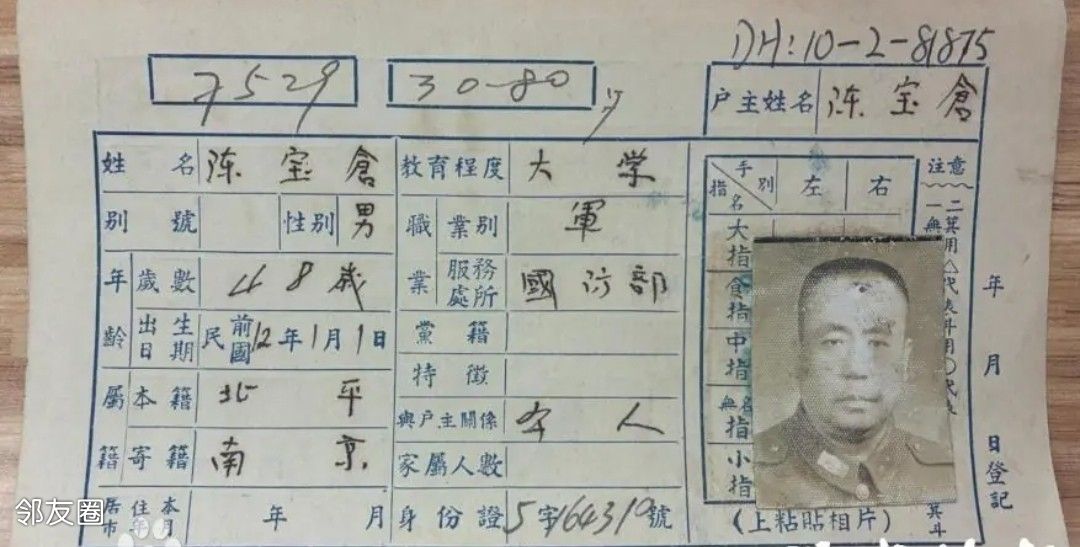 DH:10-2-81875
7529 30-80
户主姓名 陈宝倉
姓名 陈宝倉 教育程度 大学
别號 性别 男 職業 業别 軍
年齡 歲數 48歲 服務處所 國防部
出生日期 民國前12年1月1日 黨籍
特徵
屬籍 本籍 北平 與户主關係 本人
寄籍 南京 家屬人數
年 月 身份證 5字164319號
手别 指名 左 右
大指
食指
中指
無名指
小指
(上粘貼相片)
注意
年月日登記
邻友圈